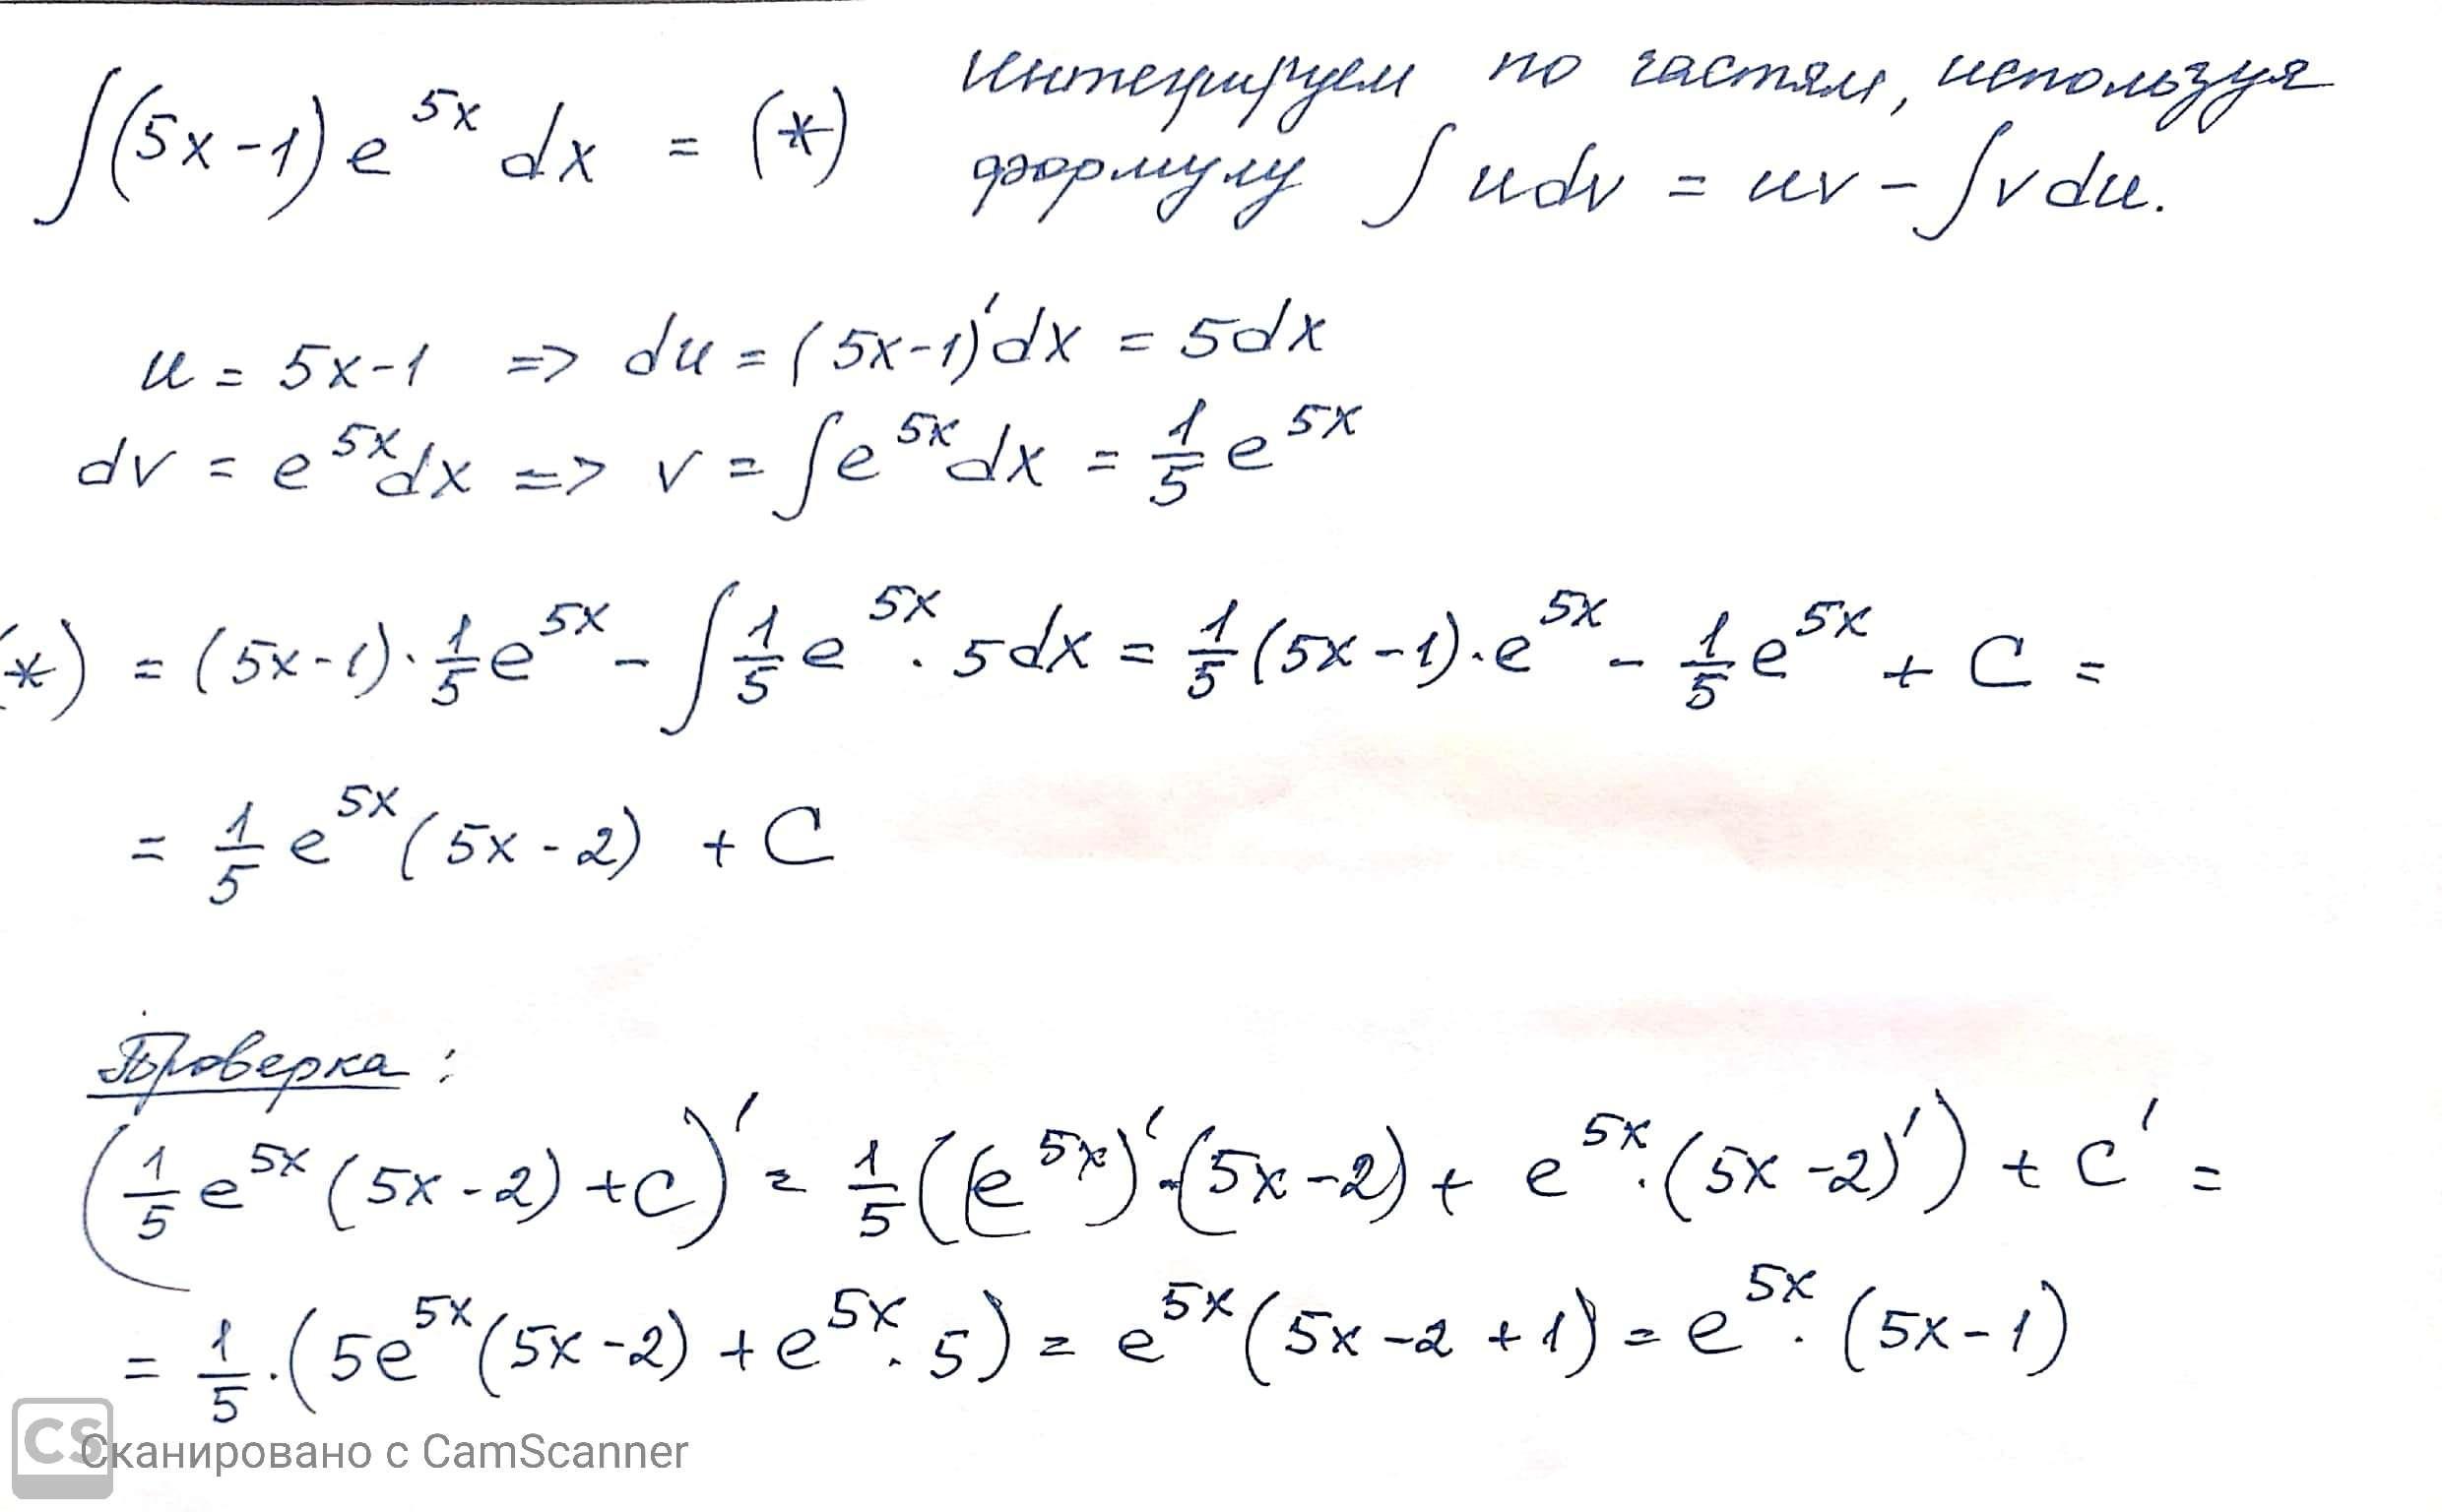 ∫(5x-1) e^{5x} dx = (*) интегрируем по частям, используя
формулу ∫udv = uv - ∫vdu.
u = 5x-1 => du = (5x-1)'dx = 5dx
dv = e^{5x}dx => v = ∫e^{5x}dx = \frac{1}{5}e^{5x}
(*) = (5x-1)·\frac{1}{5}e^{5x} - ∫\frac{1}{5}e^{5x}·5dx = \frac{1}{5}(5x-1)·e^{5x} - \frac{1}{5}e^{5x} + C =
= \frac{1}{5}e^{5x}(5x-2) + C
Проверка:
(\frac{1}{5}e^{5x}(5x-2)+C)' = \frac{1}{5}((e^{5x})'·(5x-2) + e^{5x}·(5x-2)') + C' =
= \frac{1}{5}·(5e^{5x}(5x-2) + e^{5x}·5) = e^{5x}(5x-2+1) = e^{5x}·(5x-1)
CS Сканировано с CamScanner